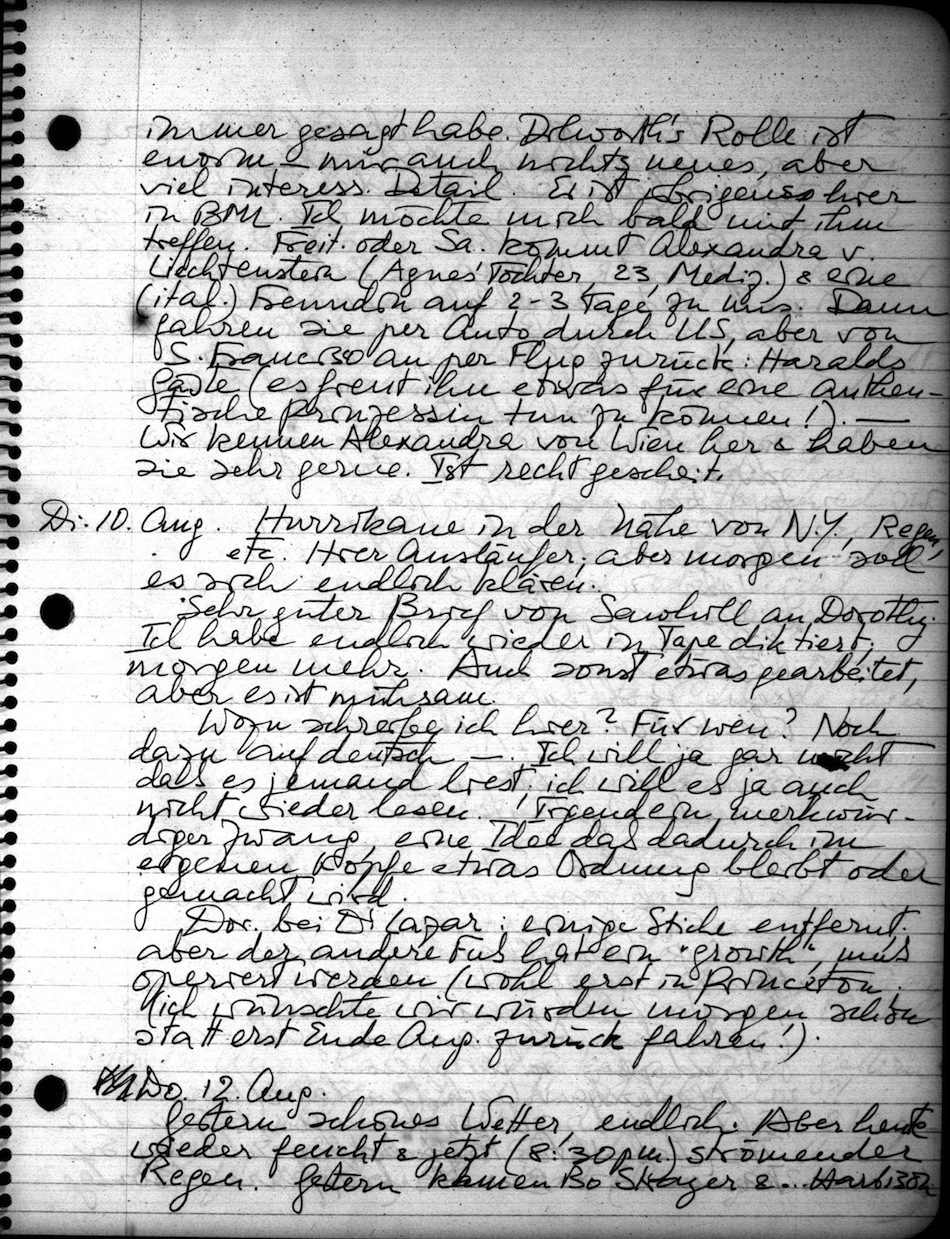 immer gesagt habe. Dilworth's Rolle ist
enorm – mir auch nichts neues, aber
viel interess. Detail. Er ist übrigens hier
in BMH. Ich möchte mich bald mit ihm
treffen. Freit. oder Sa. kommt Alexandra v.
Liechtenstein (Agnes' Tochter, 23, Mediz.) & eine
(ital.) Freundin auf 2-3 Tage zu uns. Dann
fahren sie per Auto durch US, aber von
S. Francisco an per Flug zurück: Haralds
Gäste (es freut ihn etwas für eine authen-
tische Prinzessin tun zu können!). —
Wir kennen Alexandra von Wien her & haben
sie sehr gerne. Ist recht gescheit.
Di. 10. Aug. Hurrikane in der Nähe von N.Y., Regen,
etc. Hier Ausläufer, aber morgen soll
es sich endlich klären.
Sehr guter Brief von Sawhill an Dorothy.
Ich habe endlich wieder in Tape diktiert,
morgen mehr. Auch sonst etwas gearbeitet,
aber es ist mühsam.
Wozu schreibe ich hier? Für wen? Noch
dazu auf deutsch —. Ich will ja gar nicht
daß es jemand liest, ich will es ja auch
nicht wieder lesen. Irgendein merkwür-
diger Zwang, eine Idee das dadurch im
eigenen Kopfe etwas Ordnung bleibt oder
gemacht wird.
Dor. bei Di Lazar: einige Stiche entfernt.
aber der andere Fuß hat ein "growth", muß
operiert werden (wohl erst in Princeton.
(ich wünschte wir würden morgen schon
statt erst Ende Aug. zurück fahren!).
Do. 12. Aug.
Gestern schönes Wetter, endlich. Aber heute
wieder feucht & jetzt (8:30pm) strömender
Regen. Gestern kamen Bo &... Harbison